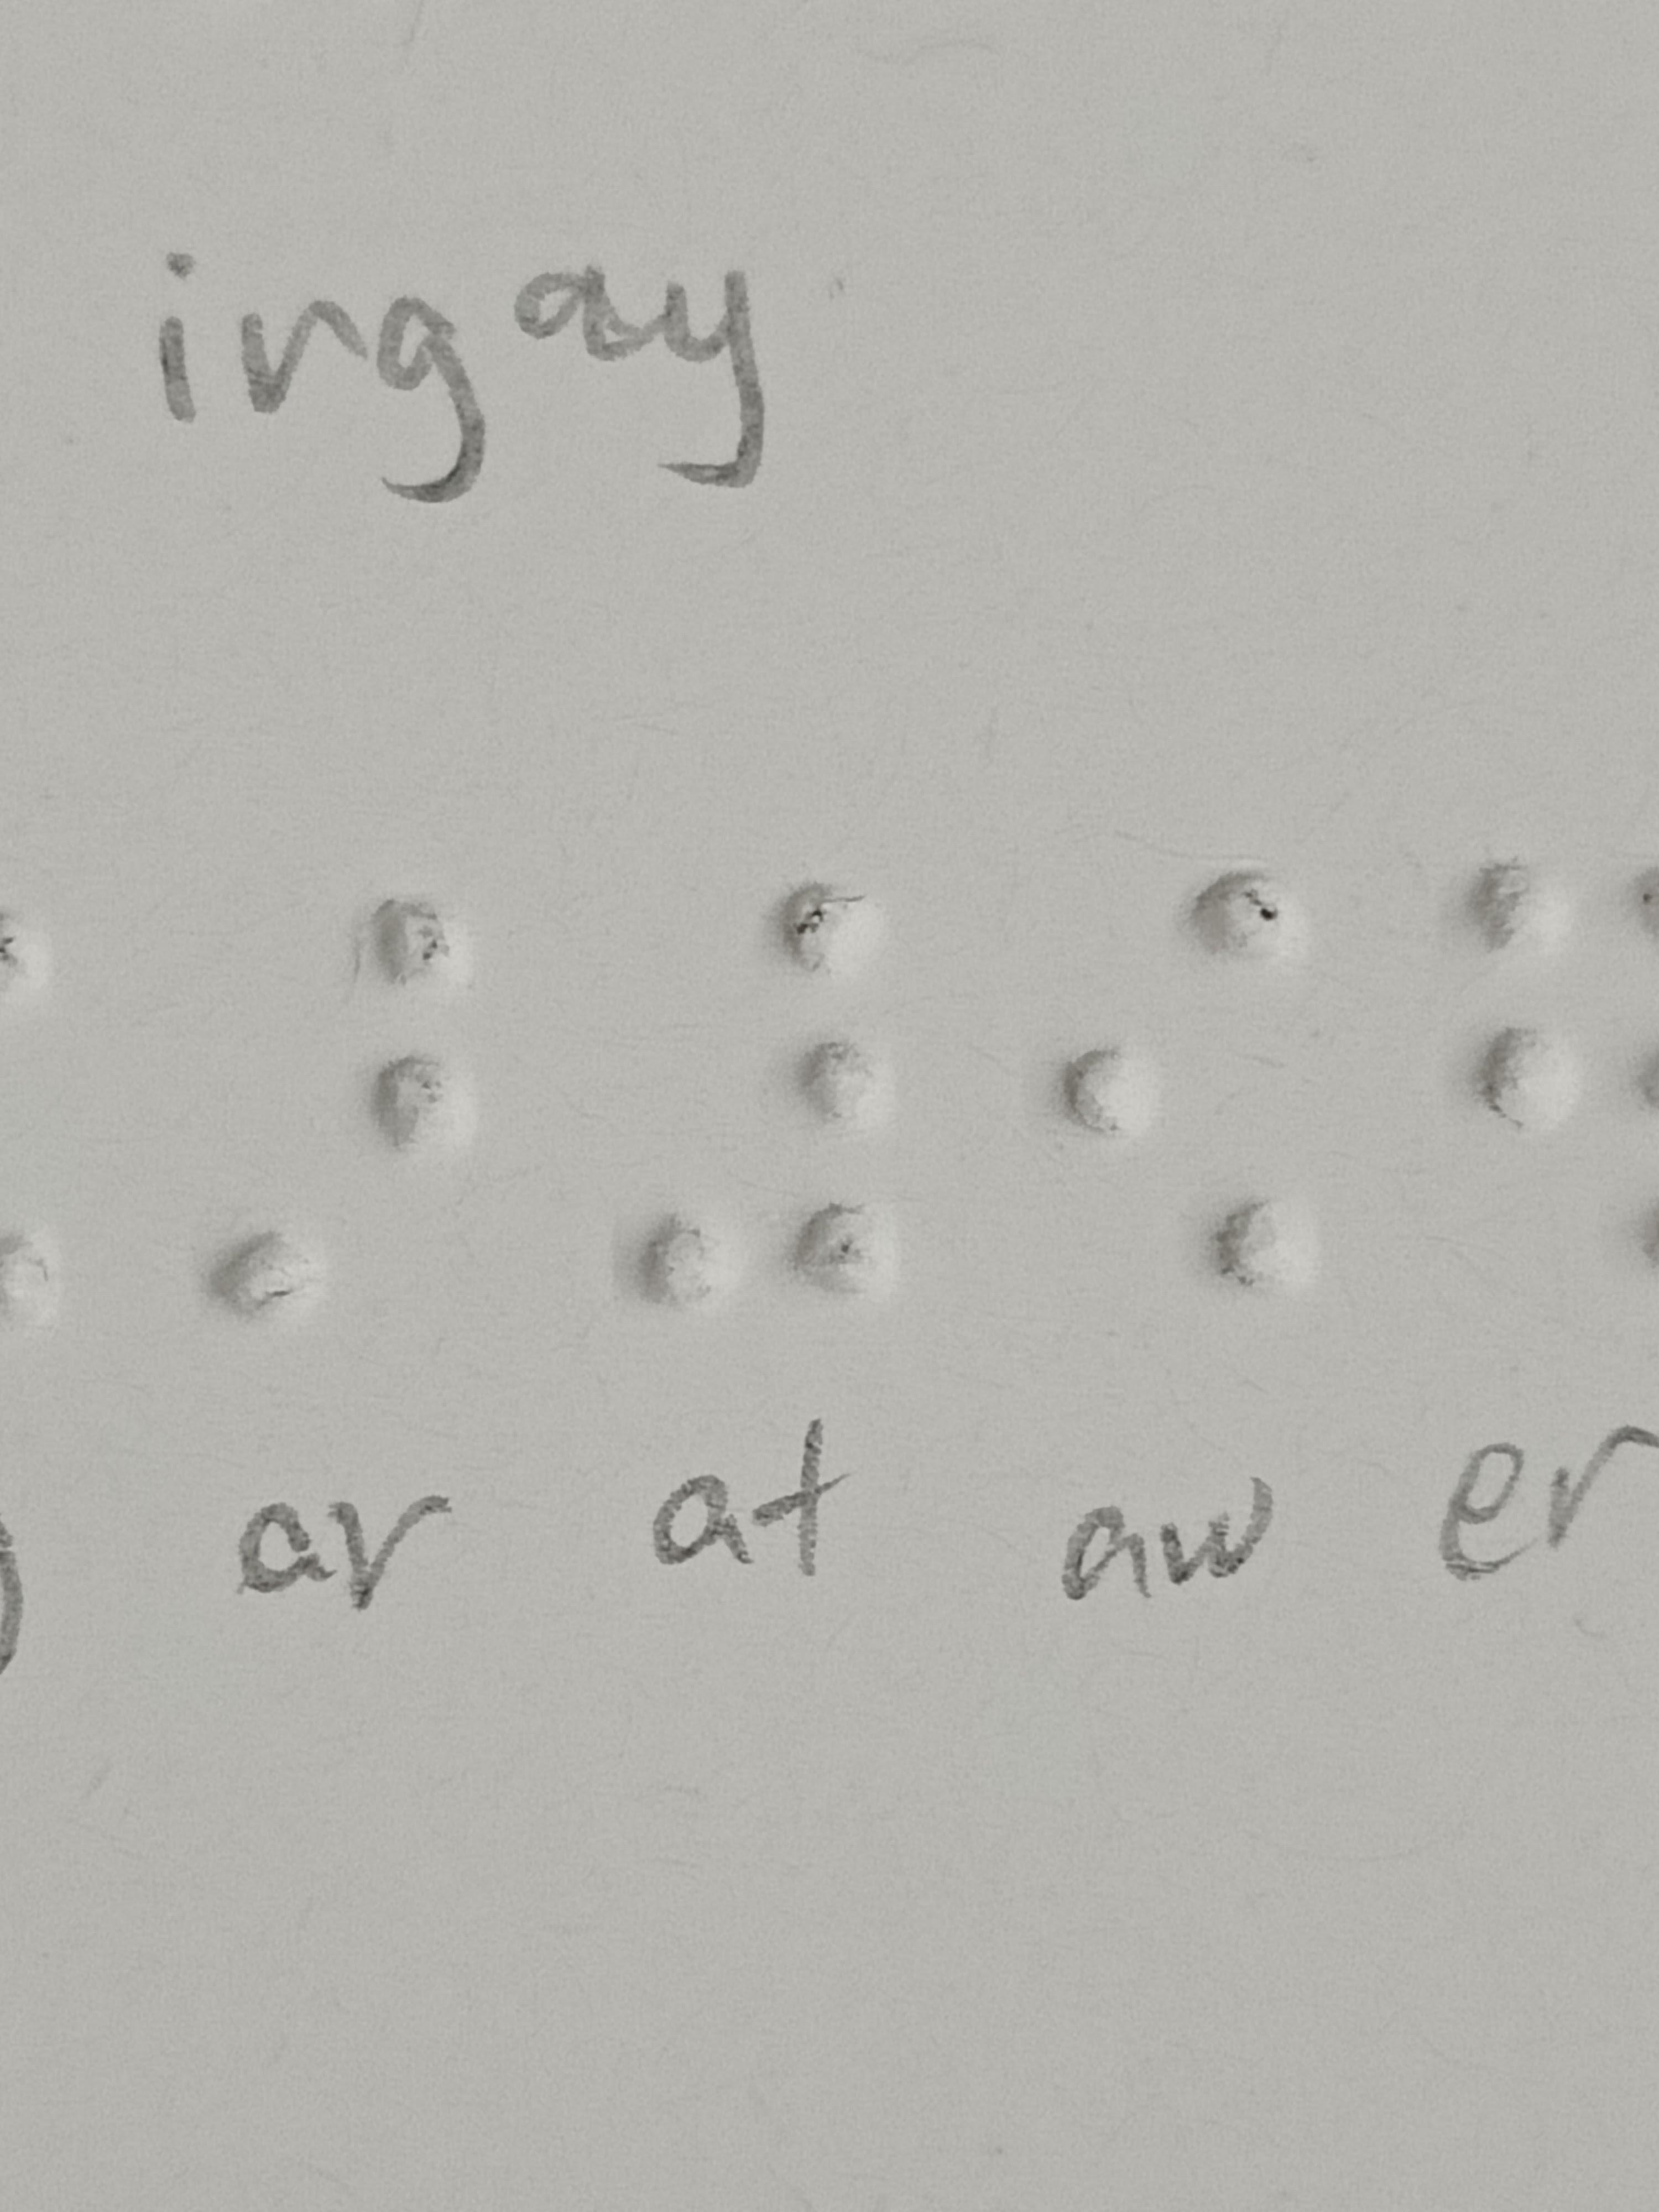 ingay
ar at aw er